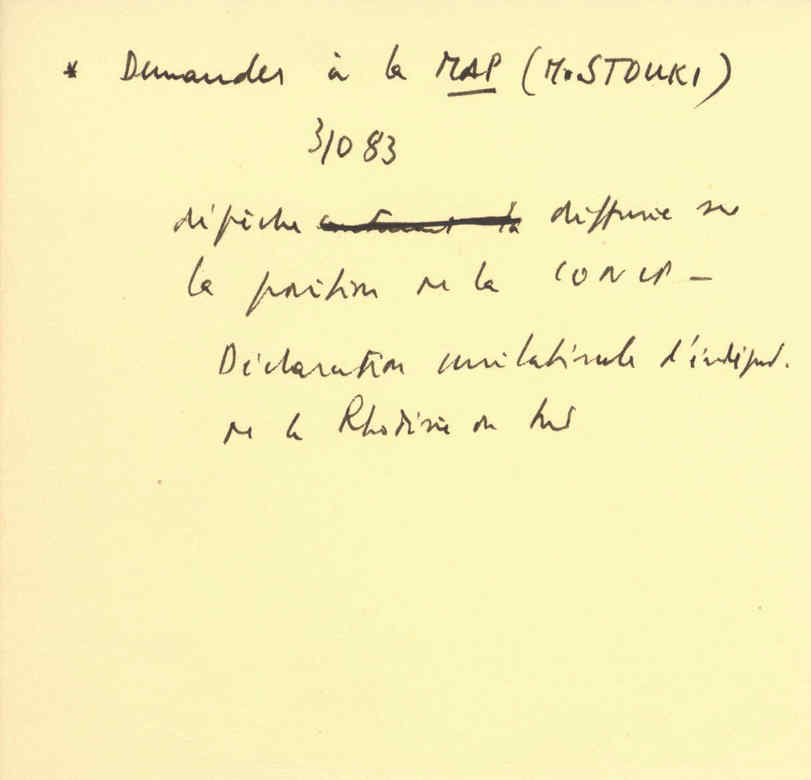 * Demander à la MAP (Mr STOUKI)
31083
dépêche diffusée sur
la position de la CONCP –
Déclaration unilatérale d'indépend.
de la Rhodésie du Sud